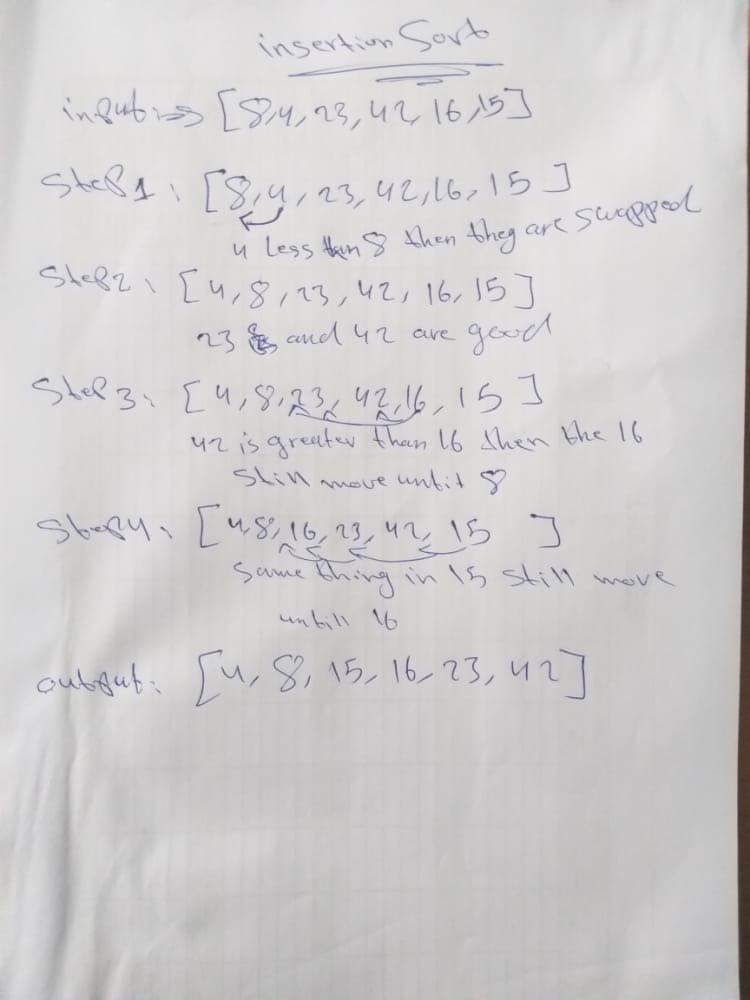 insertion Sort
input:=> [8,4,23,42,16,15]
Step1: [8,4,23,42,16,15]
4 less than 8 then they are swapped
Step2: [4,8,23,42,16,15]
23 and 42 are good
Step3: [4,8,23,42,16,15]
42 is greater than 16 then the 16
still move untit 8
Step4: [4,8,16,23,42,15]
same thing in 15 still move
untill 16
output: [4,8,15,16,23,42]